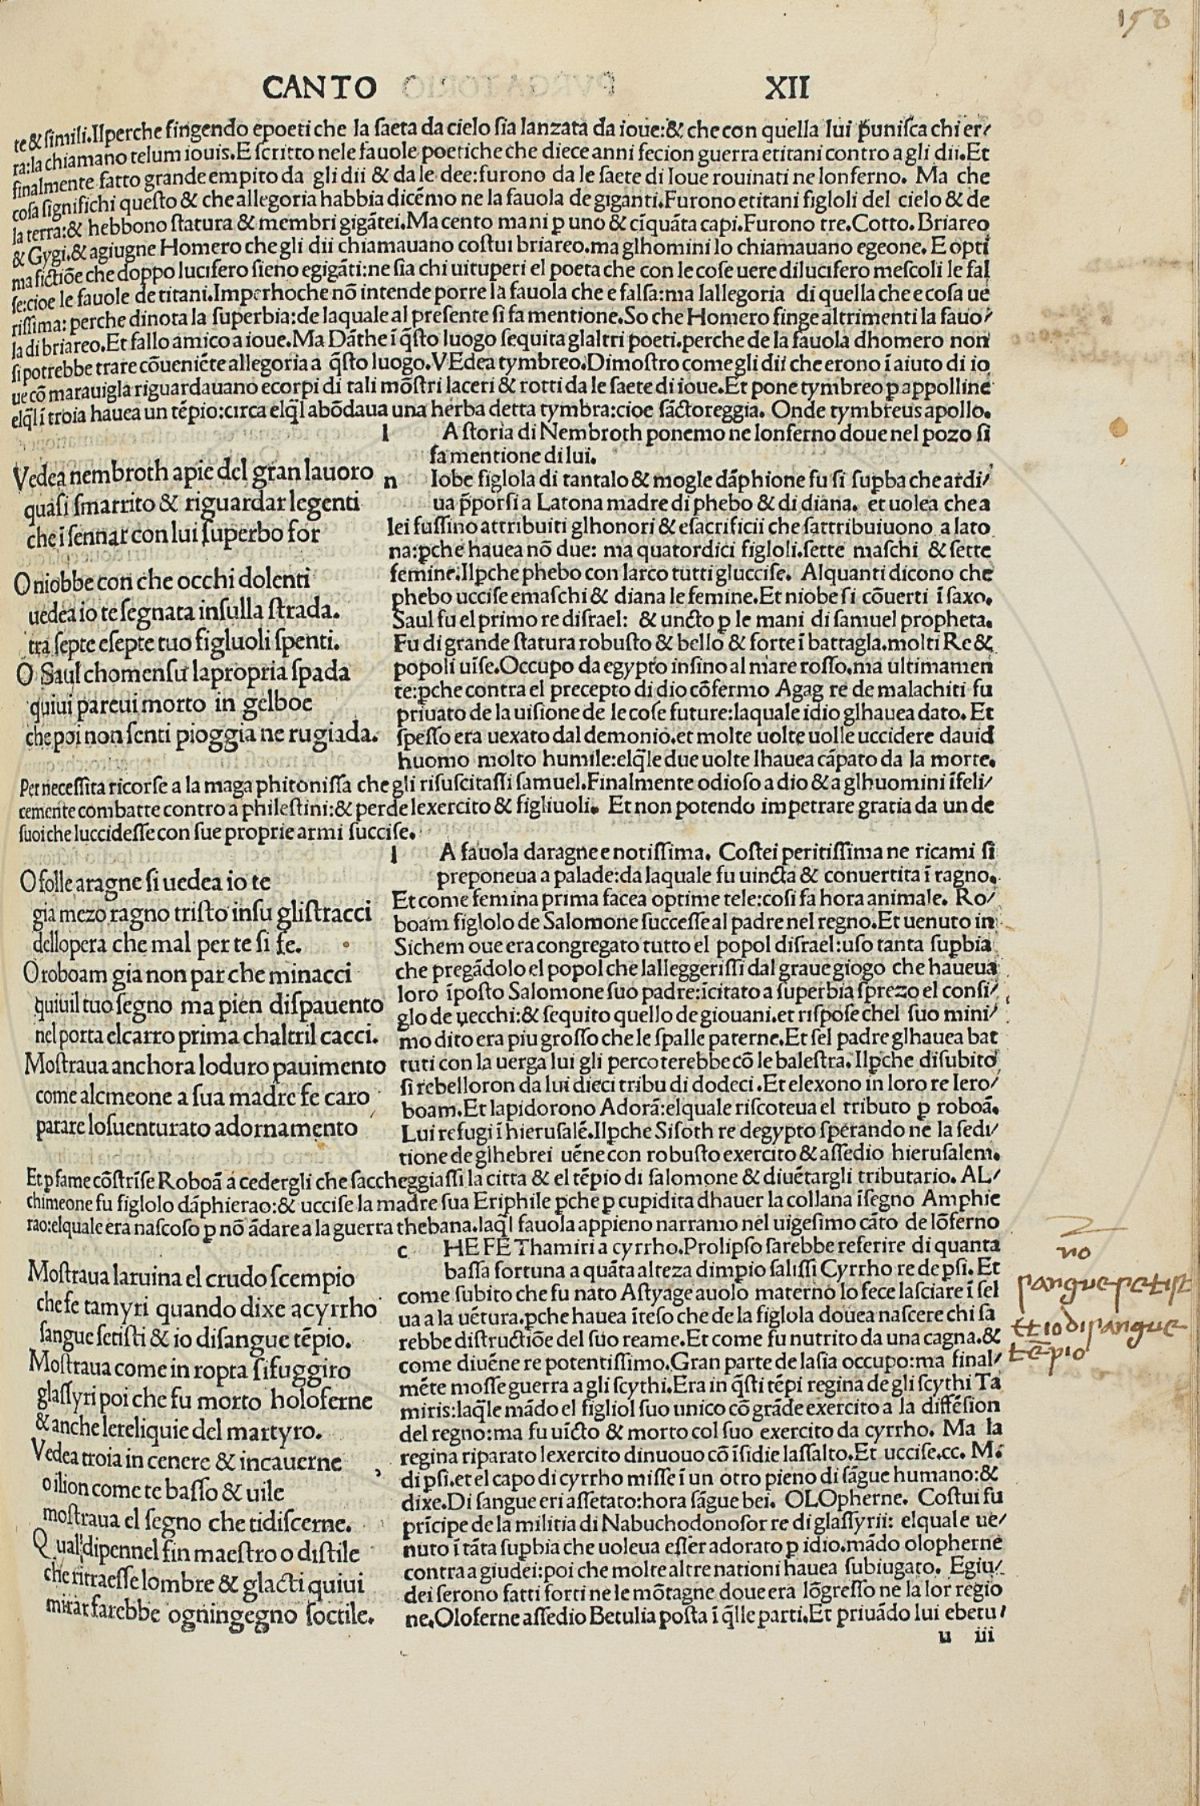 158
CANTO XII
te & simili.Ilperche fingendo epoeti che la saeta da cielo sia lanzata da ioue:& che con quella lui punisca chi er/
ra:la chiamano telum iouis.E scritto nele fauole poetiche che diece anni fecion guerra etitani contro a gli dii.Et
finalmente fatto grande empito da gli dii & da le dee:furono da le saete di Ioue rouinati ne lonferno. Ma che
cosa significhi questo & che allegoria habbia dicẽmo ne la fauola de giganti.Furono etitani figloli del cielo & de
la terra:& hebbono statura & membri gigãtei.Ma cento mani p uno & cĩquãta capi.Furono tre.Cotto. Briareo
& Gygi.& agiugne Homero che gli dii chiamauano costui briareo.ma glhomini lo chiamauano egeone. E opti
ma fictiõe che doppo lucifero sieno egigãti:ne sia chi uituperi el poeta che con le cose uere di lucifero mescoli le fal
se:cioe le fauole de titani.Imperhoche nõ intende porre la fauola che e falsa:ma lallegoria di quella che e cosa ue
rissima: perche dinota la superbia:de laquale al presente si fa mentione.So che Homero finge altrimenti la fauo/
la di briareo.Et fallo amico a ioue.Ma Dãthe ĩ q̃sto luogo sequita glaltri poeti.perche de la fauola dhomero non
si potrebbe trare cõueniẽte allegoria a q̃sto luogo.VEdea tymbreo.Dimostro come gli dii che erono ĩ aiuto di io
ue cõ marauigla riguardauano ecorpi di tali mõstri laceri & rotti da le saete di ioue.Et pone tymbreo p appolline
elq̃l ĩ troia hauea un tẽpio:circa elq̃l abõdaua una herba detta tymbra:cioe sãctoreggia. Onde tymbreus apollo.
l A storia di Nembroth ponemo ne lonferno doue nel pozo si
fa mentione di lui.
Vedea nembroth apie del gran lauoro
quasi smarrito & riguardar legenti
che ĩ sennar con lui superbo for
O niobbe con che occhi dolenti
uedea io te segnata insulla strada.
tra septe esepte tuo figluoli spenti.
O Saul chomensu lapropria spada
quiui pareui morto in gelboe
che poi non senti pioggia ne rugiada.
n Iobe figlola di tantalo & mogle dãphione fu si supba che ardi/
ua p̃porsi a Latona madre di phebo & di diana. et uolea che a
lei fussino attribuiti glhonori & esacrificii che sattribuiuono a lato
na:pche hauea nõ due: ma quatordici figloli.sette maschi & sette
femine.Ilpche phebo con larco tutti gluccise. Alquanti dicono che
phebo uccise emaschi & diana le femine.Et niobe si cõuerti ĩ saxo.
Saul fu el primo re disrael: & uncto p le mani di samuel propheta.
Fu di grande statura robusto & bello & forte ĩ battagla.molti Re &
popoli uise.Occupo da egypto insino al mare rosso.ma ultimamen
te:pche contra el precepto di dio cõfermo Agag re de malachiti fu
priuato de la uisione de le cose future:laquale idio glhauea dato. Et
spesso era uexato dal demonio.et molte uolte uolle uccidere dauid
huomo molto humile:elq̃le due uolte lhauea cãpato da la morte.
Per necessita ricorse a la maga phitonissa che gli risuscitassi samuel.Finalmente odioso a dio & a glhuomini ĩfeli/
cemente combatte contro a philestini:& perde lexercito & figliuoli. Et non potendo impetrare gratia da un de
suoi che luccidesse con sue proprie armi succise.
O folle aragne si uedea io te
gia mezo ragno tristo insu glistracci
dellopera che mal per te si fe.
O roboam gia non par che minacci
quiuil tuo segno ma pien dispauento
nel porta elcarro prima chaltril cacci.
Mostraua anchora loduro pauimento
come alcmeone a sua madre fe caro
parare losuenturato adornamento
l A fauola daragne e notissima. Costei peritissima ne ricami si
preponeua a palade:da laquale fu uincta & conuertita ĩ ragno.
Et come femina prima facea optime tele:cosi fa hora animale. Ro/
boam figlolo de Salomone successe al padre nel regno.Et uenuto in
Sichem oue era congregato tutto el popol disrael:uso tanta supbia
che pregãdolo el popol che lalleggerissi dal graue giogo che haueua
loro ĩposto Salomone suo padre:ĩcitato a superbia sprezo el consi/
glo de uecchi:& sequito quello de giouani.et rispose chel suo mini/
mo dito era piu grosso che le spalle paterne.Et sel padre glhauea bat
tuti con la uerga lui gli percoterebbe cõ le balestra.Ilpche disubito
si rebelloron da lui dieci tribu di dodeci.Et elexono in loro re Iero/
boam.Et lapidorono Adorã:elquale riscoteua el tributo p roboã.
Lui refugi ĩ hierusalẽ.Ilpche Sisoth re degypto sperando ne la sedi/
tione de glhebrei uẽne con robusto exercito & assedio hierusalem.
Et p fame cõstrĩse Roboã a cedergli che saccheggiassi la citta & el tẽpio di salomone & diuẽtargli tributario. AL/
chimeone fu figlolo dãphierao:& uccise la madre sua Eriphile pche p cupidita dhauer la collana ĩsegno Amphie
rao:elquale era nascoso p nõ ãdare a la guerra thebana.laq̃l fauola appieno narramo nel uigesimo cãto de lõferno
Mostraua laruina el crudo scempio
che fe tamyri quando dixe a cyrrho
sangue setisti & io disangue tẽpio.
Mostraua come in ropta sifuggiro
glassyri poi che fu morto holoferne
& anche lereliquie del martyro.
Vedea troia in cenere & incauerne
o ilion come te basso & uile
mostraua el segno che tidiscerne.
Qual dipennel fin maestro o distile
che ritraesse lombre & glacti quiui
mirar farebbe ogningegno soctile.
c HE FE Thamiri a cyrrho.Prolipso sarebbe referire di quanta
bassa fortuna a quãta alteza dimpio salissi Cyrrho re de psi. Et
come subito che fu nato Astyage auolo materno lo fece lasciare ĩ sel
ua a la uẽtura.pche hauea ĩteso che de la figlola douea nascere chi sa
rebbe distructiõe del suo reame.Et come fu nutrito da una cagna.&
come diuẽne re potentissimo.Gran parte de lasia occupo:ma final/
mẽte mosse guerra a gli scythi.Era in q̃sti tẽpi regina de gli scythi Ta
miris:laq̃le mãdo el figliol suo unico cõ grãde exercito a la diffẽsion
del regno:ma fu uĩcto & morto col suo exercito da cyrrho. Ma la
regina riparato lexercito dinuouo cõ ĩsidie lassalto.Et uccise.cc. M.
di psi.et el capo di cyrrho misse ĩ un otro pieno di sãgue humano:&
dixe.Di sangue eri assetato:hora sãgue bei. OLOpherne. Costui fu
prĩcipe de la militia di Nabuchodonosor re di glassyrii: elquale ue/
nuto ĩ tãta supbia che uoleua esser adorato p idio.mãdo olopherne
contra a giudei:poi che molte altre nationi hauea subiugato. Egiu/
dei serono fatti forti ne le mõtagne doue era lõgresso ne la lor regio
ne.Oloferne assedio Betulia posta ĩ q̃lle parti.Et priuãdo lui ebetu/
u iii
no
sangue setist
et io di sangue
tẽpio